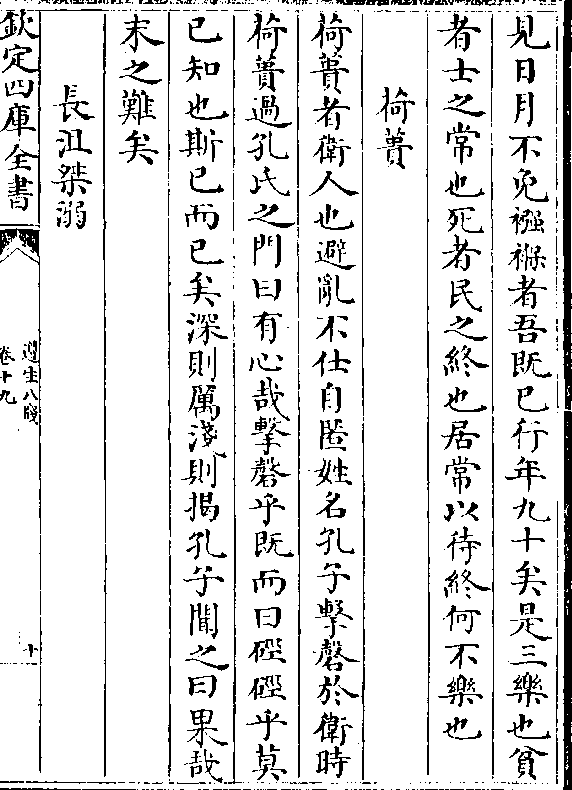 見日月不免襁褓者吾既已行年九十矣是三樂也貧
者士之常也死者民之終也居常以待終何不樂也
荷蕢
荷蕢者衛人也避亂不仕自匿姓名孔子擊磬於衛時
荷蕢過孔氏之門曰有心哉擊磬乎既而曰硜硜乎莫
已知也斯已而已矣深則厲淺則揭孔子聞之曰果哉
末之難矣
長沮桀溺
欽定四庫全書
遵生八牋
卷十九
十